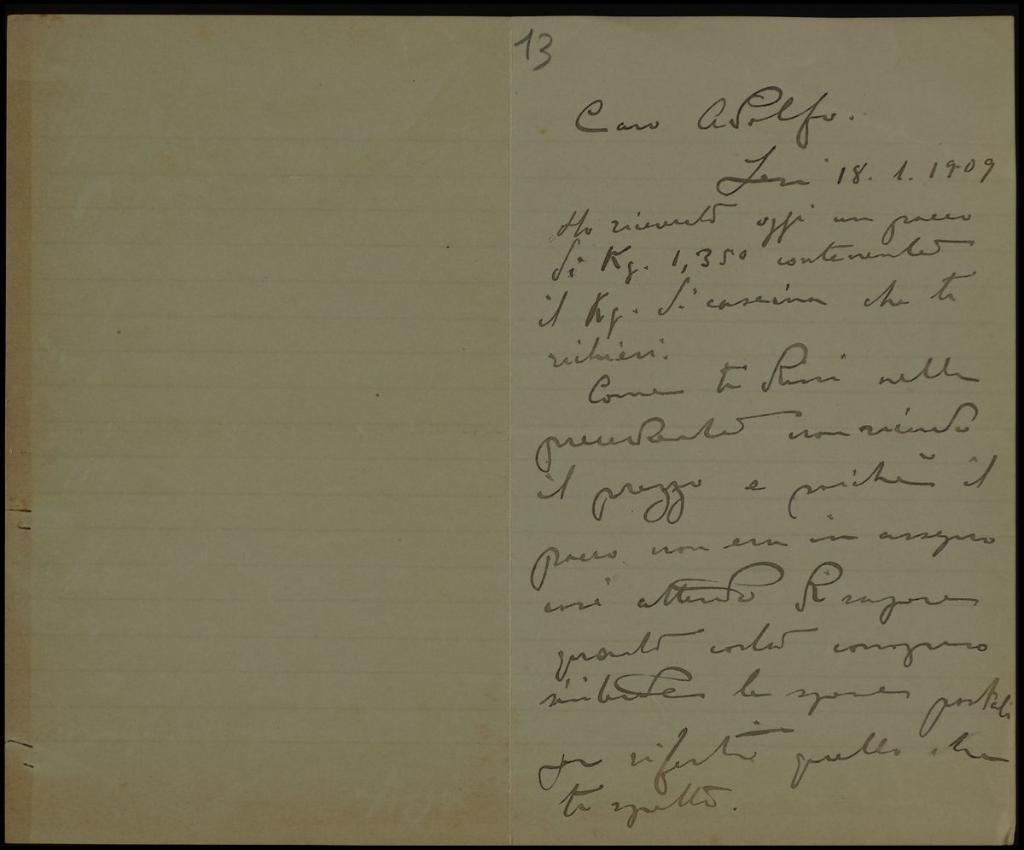 13
Caro Adolfo.
Jesi 18. 1. 1909
Ho ricevuto oggi un pacco
di Kg. 1,350 contenente
il Kg. di caseina che ti
richiesi.
Come ti dissi nella
precedente non ricordo
il prezzo e poichè il
pacco non era in assegno
così attendo di sapere
quanto costa compreso
le spese postali
per rifarti quello che
ti spetta.